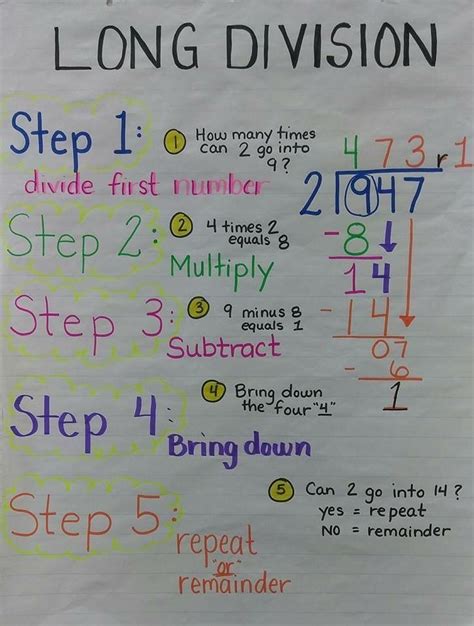 LONG DIVISION
Step 1:
1 How many times
can 2 go into
9?
divide first number
473r1
2 947
-8
14
-14
07
-6
1
Step 2:
2 4 times 2
equals 8
Multiply
Step 3:
3 9 minus 8
equals 1
Subtract
Step 4:
4 Bring down
the four "4"
Bring down
Step 5:
5 Can 2 go into 14?
yes = repeat
NO = remainder
repeat
"or"
remainder